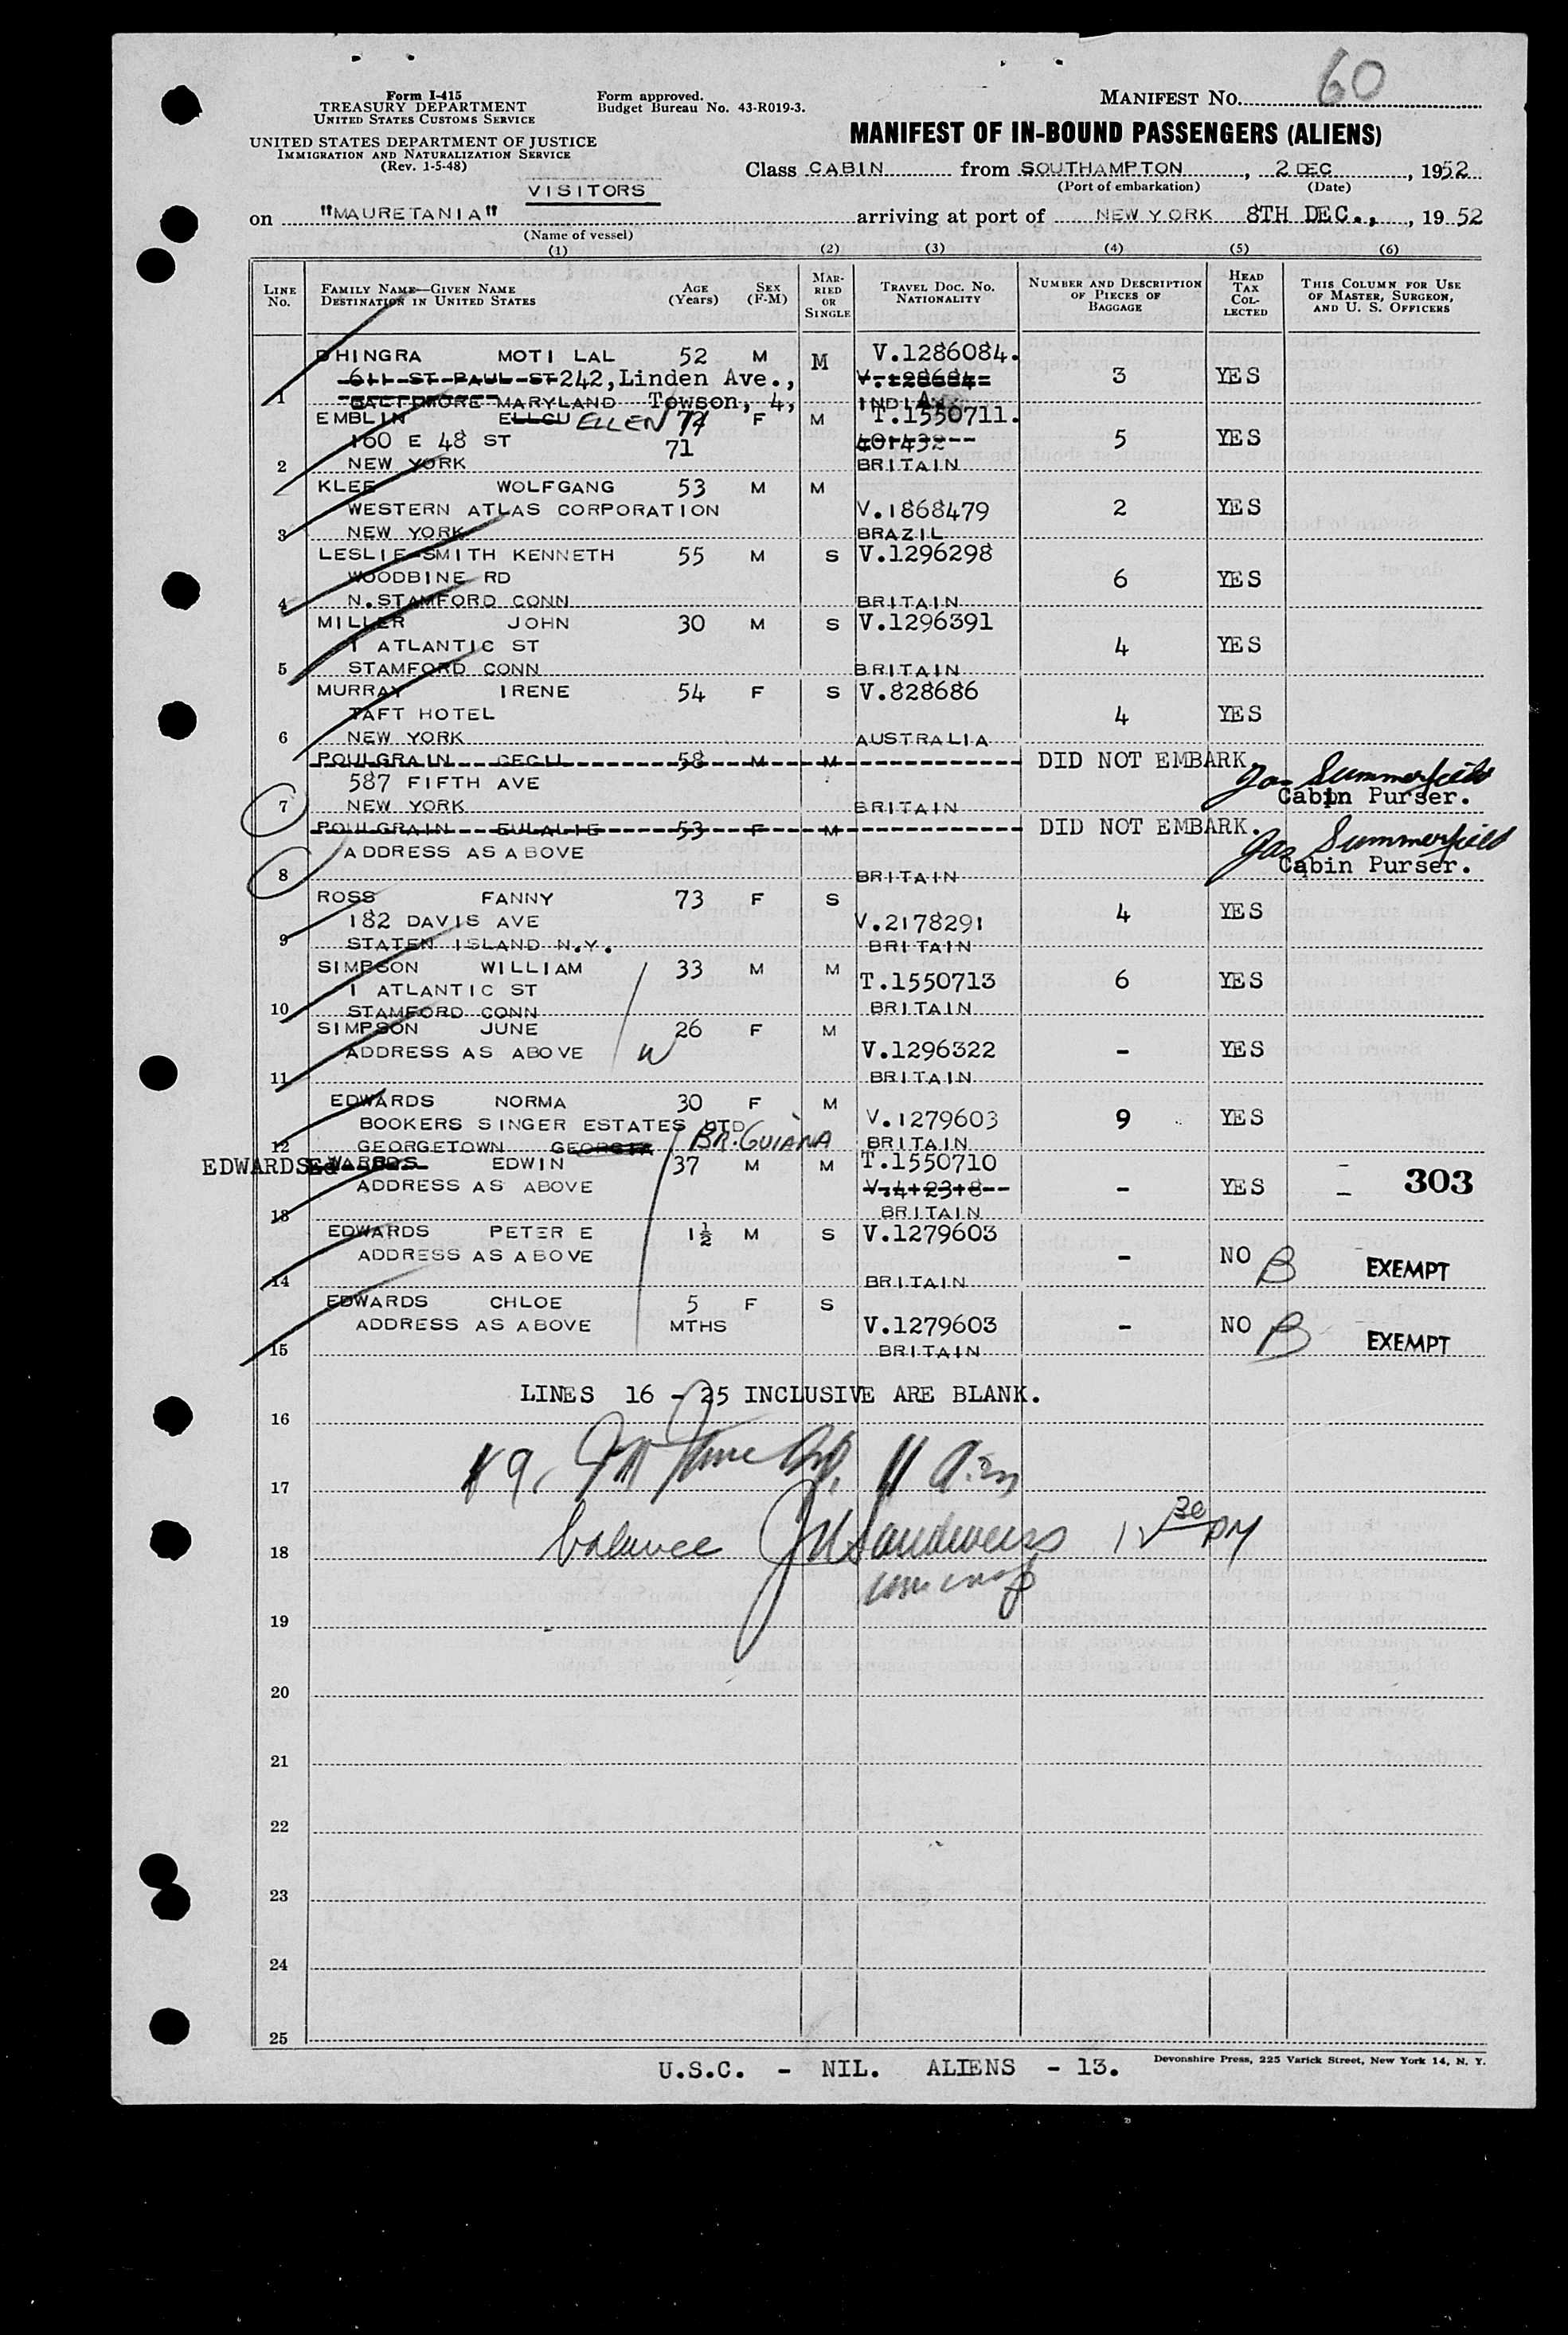 60
Form I-415
TREASURY DEPARTMENT
UNITED STATES CUSTOMS SERVICE
UNITED STATES DEPARTMENT OF JUSTICE
IMMIGRATION AND NATURALIZATION SERVICE
(Rev. 1-5-48)
Form approved.
Budget Bureau No. 43-R019-3.
MANIFEST NO.
MANIFEST OF IN-BOUND PASSENGERS (ALIENS)
Class CABIN from SOUTHAMPTON, 2 DEC, 1952
(Port of embarkation) (Date)
VISITORS
on "MAURETANIA" arriving at port of NEW YORK 8TH DEC., , 1952
(Name of vessel)
(1) (2) (3) (4) (5) (6)
LINE No. FAMILY NAME—GIVEN NAME DESTINATION IN UNITED STATES AGE (Years) SEX (F-M) MARRIED OR SINGLE TRAVEL DOC. NO. NATIONALITY NUMBER AND DESCRIPTION OF PIECES OF BAGGAGE HEAD TAX COLLECTED THIS COLUMN FOR USE OF MASTER, SURGEON, AND U. S. OFFICERS
DHINGRA MOTI LAL 52 M M V.1286084.
611 ST PAUL ST 242, Linden Ave., V.128684 3 YES
1 BALTIMORE MARYLAND Towson, 4, INDIA
EMBLIN ELLEN 77 F M T.1550711.
160 E 48 ST 71 401432 5 YES
2 NEW YORK BRITAIN
KLEE WOLFGANG 53 M M
WESTERN ATLAS CORPORATION V.1868479 2 YES
3 NEW YORK BRAZIL
LESLIE SMITH KENNETH 55 M S V.1296298
WOODBINE RD 6 YES
4 N.STAMFORD CONN BRITAIN
MILLER JOHN 30 M S V.1296391
1 ATLANTIC ST 4 YES
5 STAMFORD CONN BRITAIN
MURRAY IRENE 54 F S V.828686
TAFT HOTEL 4 YES
6 NEW YORK AUSTRALIA
POULGRAIN CECIL 58 M M DID NOT EMBARK.
587 FIFTH AVE Jas Summerfield
7 NEW YORK BRITAIN Cabin Purser.
POULGRAIN EULALIE 53 F M DID NOT EMBARK.
ADDRESS AS ABOVE Jas Summerfield
8 BRITAIN Cabin Purser.
ROSS FANNY 73 F S
182 DAVIS AVE V.2178291 4 YES
9 STATEN ISLAND N.Y. BRITAIN
SIMPSON WILLIAM 33 M M
1 ATLANTIC ST T.1550713 6 YES
10 STAMFORD CONN BRITAIN
SIMPSON JUNE 26 F M
ADDRESS AS ABOVE W V.1296322 - YES
11 BRITAIN
EDWARDS NORMA 30 F M
BOOKERS SINGER ESTATES LTD V.1279603 9 YES
12 GEORGETOWN GEORGIA BR. GUIANA BRITAIN
EDWARDS EDWIN 37 M M T.1550710
ADDRESS AS ABOVE V.4+23+8 - YES - 303
13 BRITAIN
EDWARDS PETER E 1½ M S V.1279603
ADDRESS AS ABOVE - NO B EXEMPT
14 BRITAIN
EDWARDS CHLOE 5 F S
ADDRESS AS ABOVE MTHS V.1279603 - NO B EXEMPT
15 BRITAIN
LINES 16 - 25 INCLUSIVE ARE BLANK.
16
17
balance 12 30 PM
18
19
20
21
22
23
24
25
U.S.C. - NIL. ALIENS - 13.
Devonshire Press, 225 Varick Street, New York 14, N. Y.